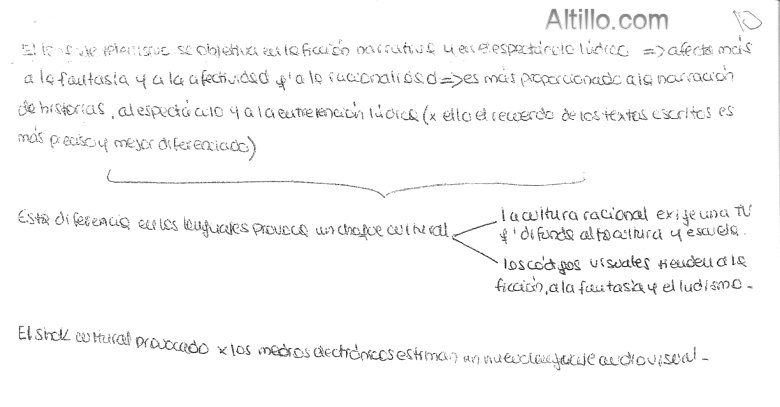 Altillo.com
10
El lenguaje televisivo se objetiva en la ficción narrativa y en el espectáculo lúdico => afecta más
a la fantasía y a la afectividad q' a la racionalidad => es más proporcionado a la narración
de historias, al espectáculo y a la entretención lúdica (x ello el recuerdo de los textos escritos es
más preciso y mejor diferenciado)
Esta diferencia en los lenguajes provoca un choque cultural
la cultura racional exige una TV
q' difunda alta cultura y escuela.
los códigos visuales tienden a la
ficción, a la fantasía y el ludismo.
El shock cultural provocado x los medios electrónicos un nuevo lenguaje audiovisual.